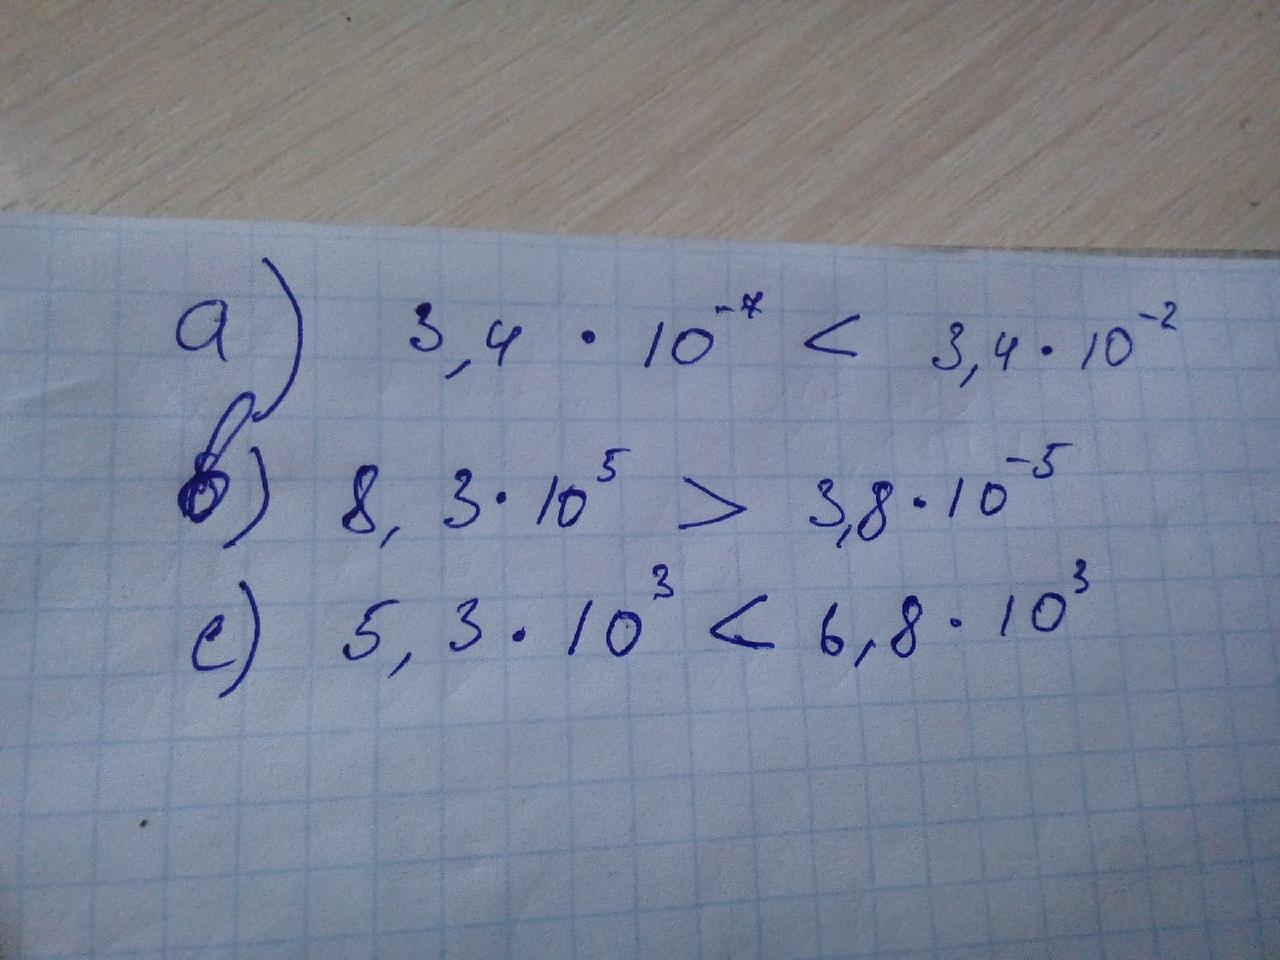 a) 3,4 · 10⁻⁷ < 3,4 · 10⁻²
в) 8,3 · 10⁵ > 3,8 · 10⁻⁵
c) 5,3 · 10³ < 6,8 · 10³